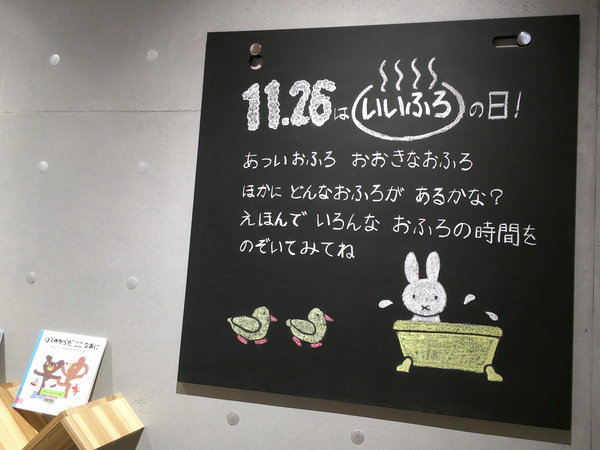 11.26はいいふろの日!
あついおふろ おおきなおふろ
ほかに どんなおふろが あるかな?
えほんで いろんな おふろの時間を
のぞいてみてね
ぼくのからだ ここ なあに